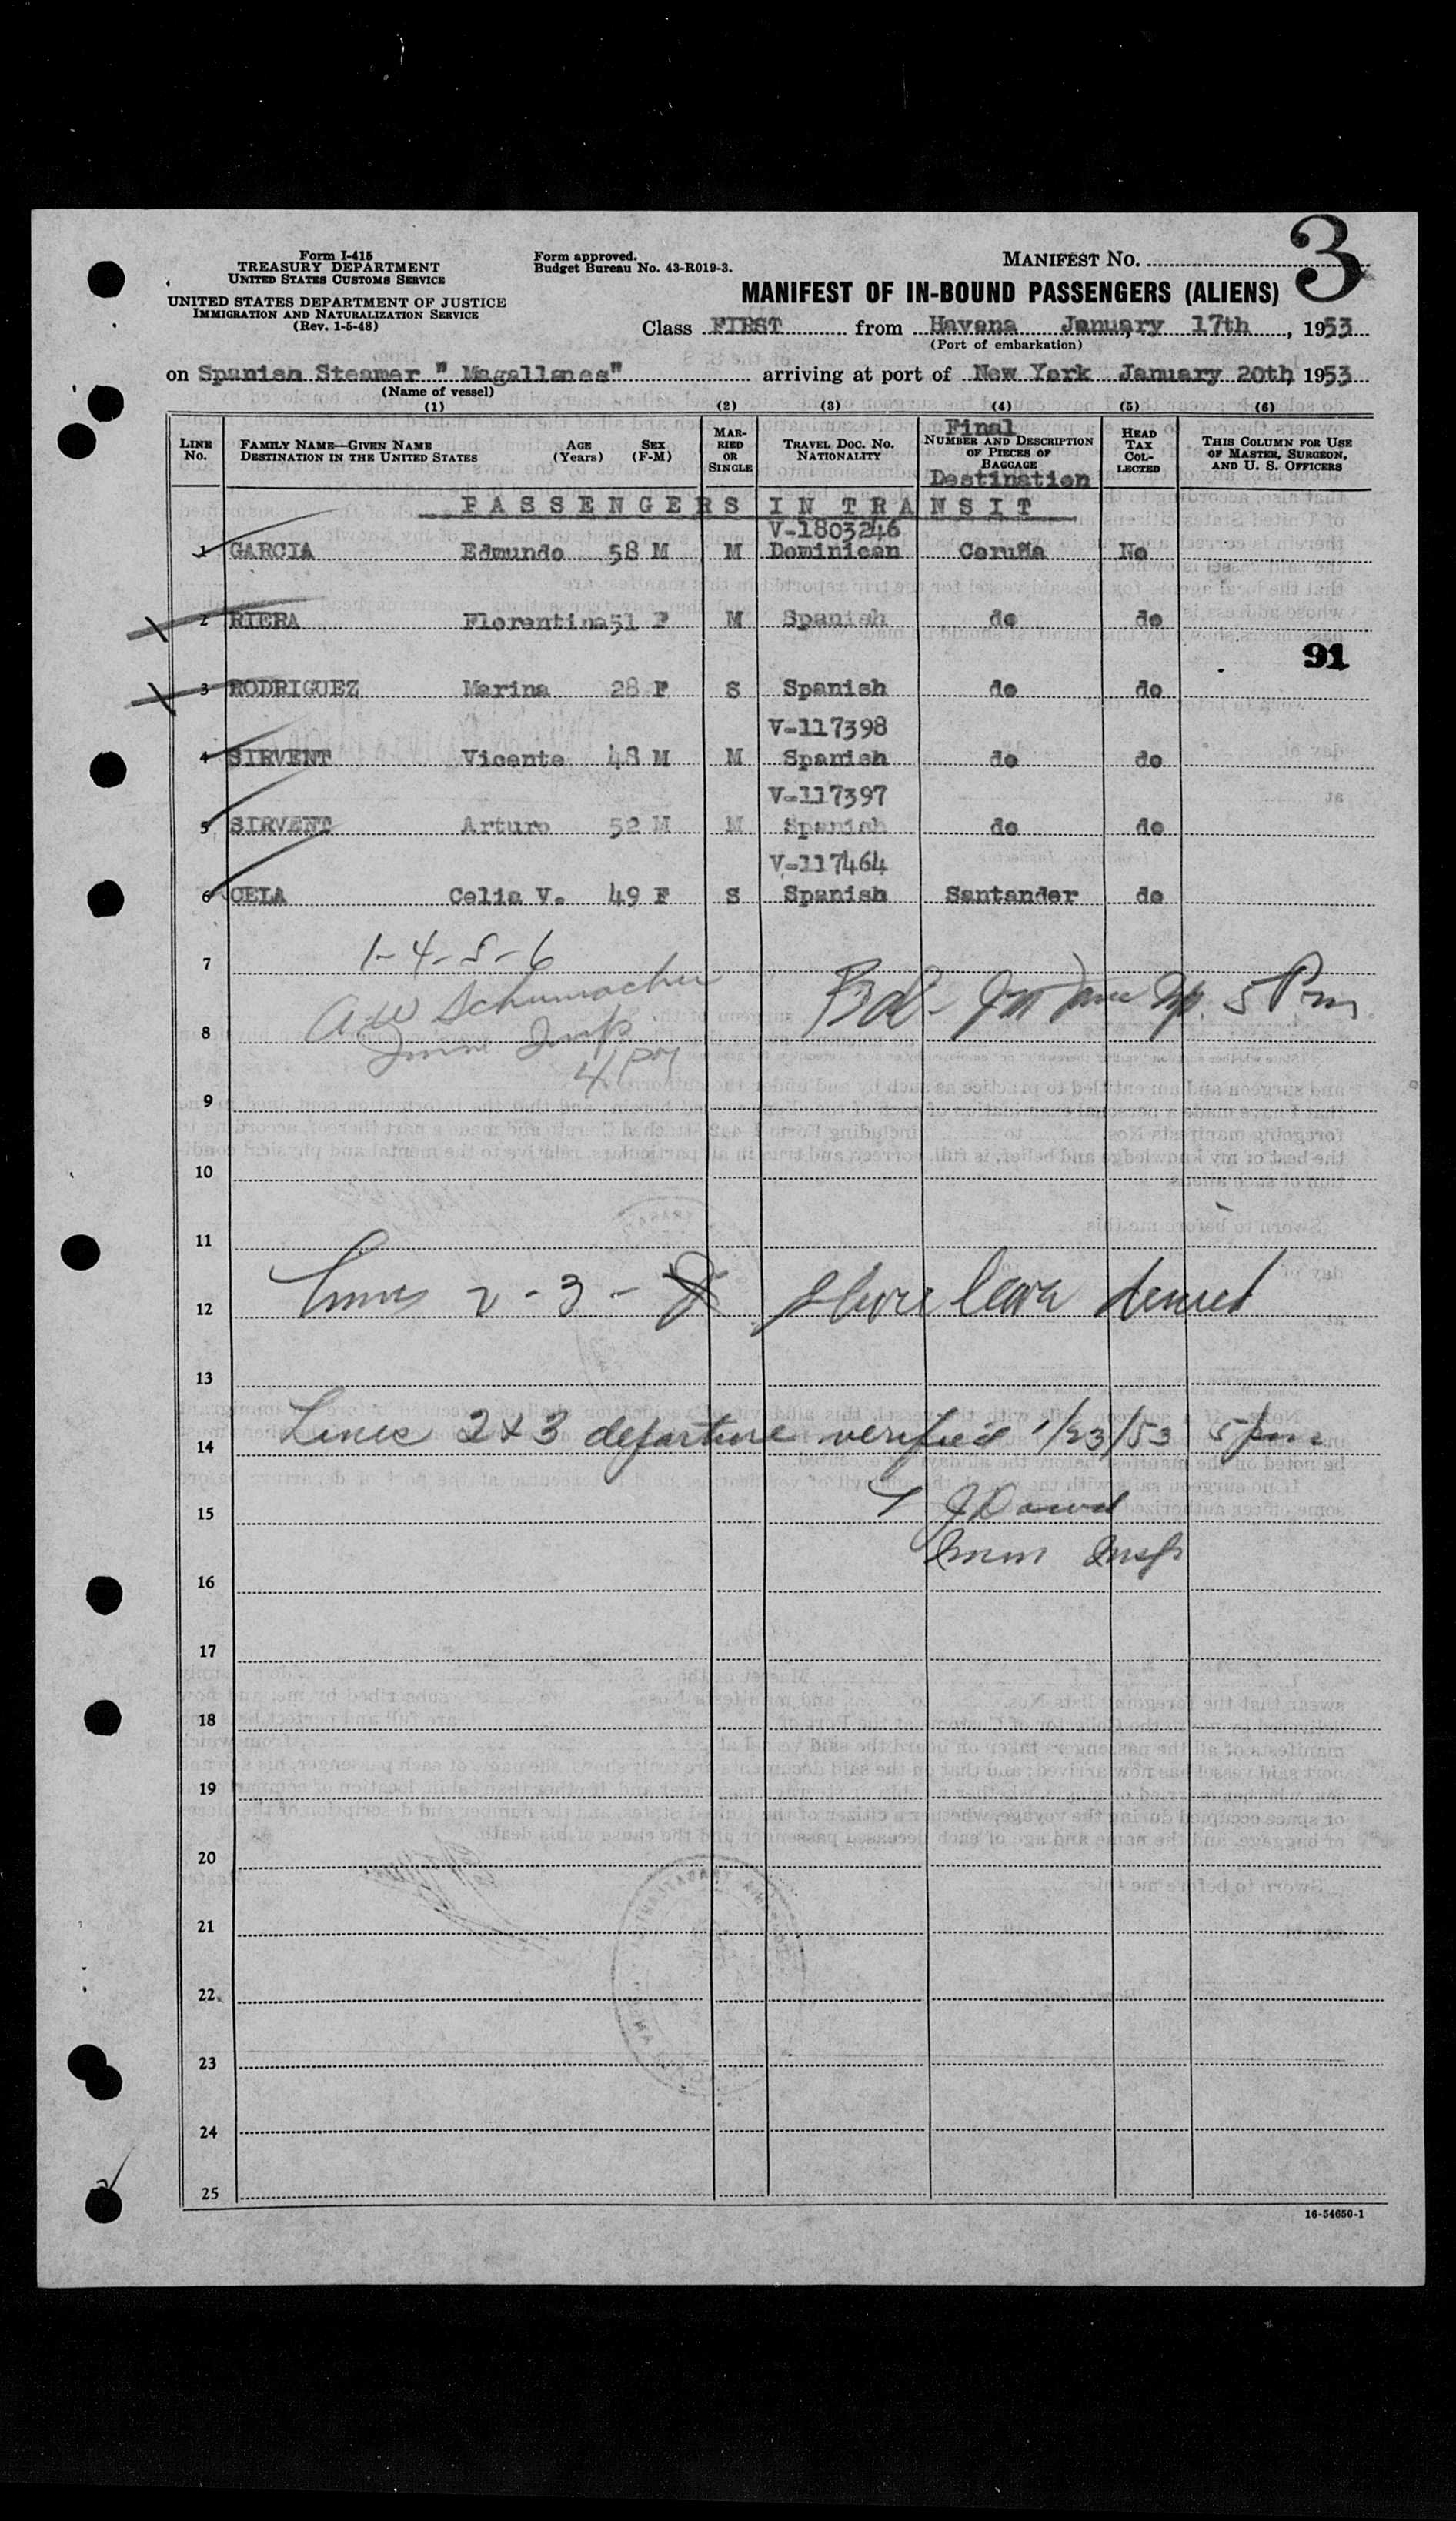 3
Form I-415
TREASURY DEPARTMENT
UNITED STATES CUSTOMS SERVICE
UNITED STATES DEPARTMENT OF JUSTICE
IMMIGRATION AND NATURALIZATION SERVICE
(Rev. 1-5-48)
Form approved.
Budget Bureau No. 43-R019-3.
MANIFEST NO.
MANIFEST OF IN-BOUND PASSENGERS (ALIENS)
Class FIRST from Havana January 17th, 1953
(Port of embarkation)
on Spanish Steamer " Magallanes" arriving at port of New York January 20th, 1953
(Name of vessel)
(1) (2) (3) (4) (5) (6)
LINE NO. FAMILY NAME—GIVEN NAME DESTINATION IN THE UNITED STATES AGE (Years) SEX (F-M) MARRIED OR SINGLE TRAVEL DOC. NO. NATIONALITY Final NUMBER AND DESCRIPTION OF PIECES OF BAGGAGE Destination HEAD TAX COLLECTED THIS COLUMN FOR USE OF MASTER, SURGEON, AND U. S. OFFICERS
PASSENGERS IN TRANSIT
V-1803246
1 GARCIA Edmundo 58 M M Dominican Coruña No
2 RIERA Florentina 51 F M Spanish do do
91
3 RODRIGUEZ Marina 28 F S Spanish do do
V-117398
4 SIRVENT Vicente 48 M M Spanish do do
V-117397
5 SIRVENT Arturo 52 M M Spanish do do
V-117464
6 CELA Celia V. 49 F S Spanish Santander do
1-4-5-6
7
A W Schumacher
5 Pm
8
Imm Insp
9
10
11
Lines 2-3- shore leave denied
12
13
Lines 2 & 3 departure verified 1/23/53 5 pm
14
15
Imm Insp
16
17
18
19
20
21
22
23
24
25
16-54650-1